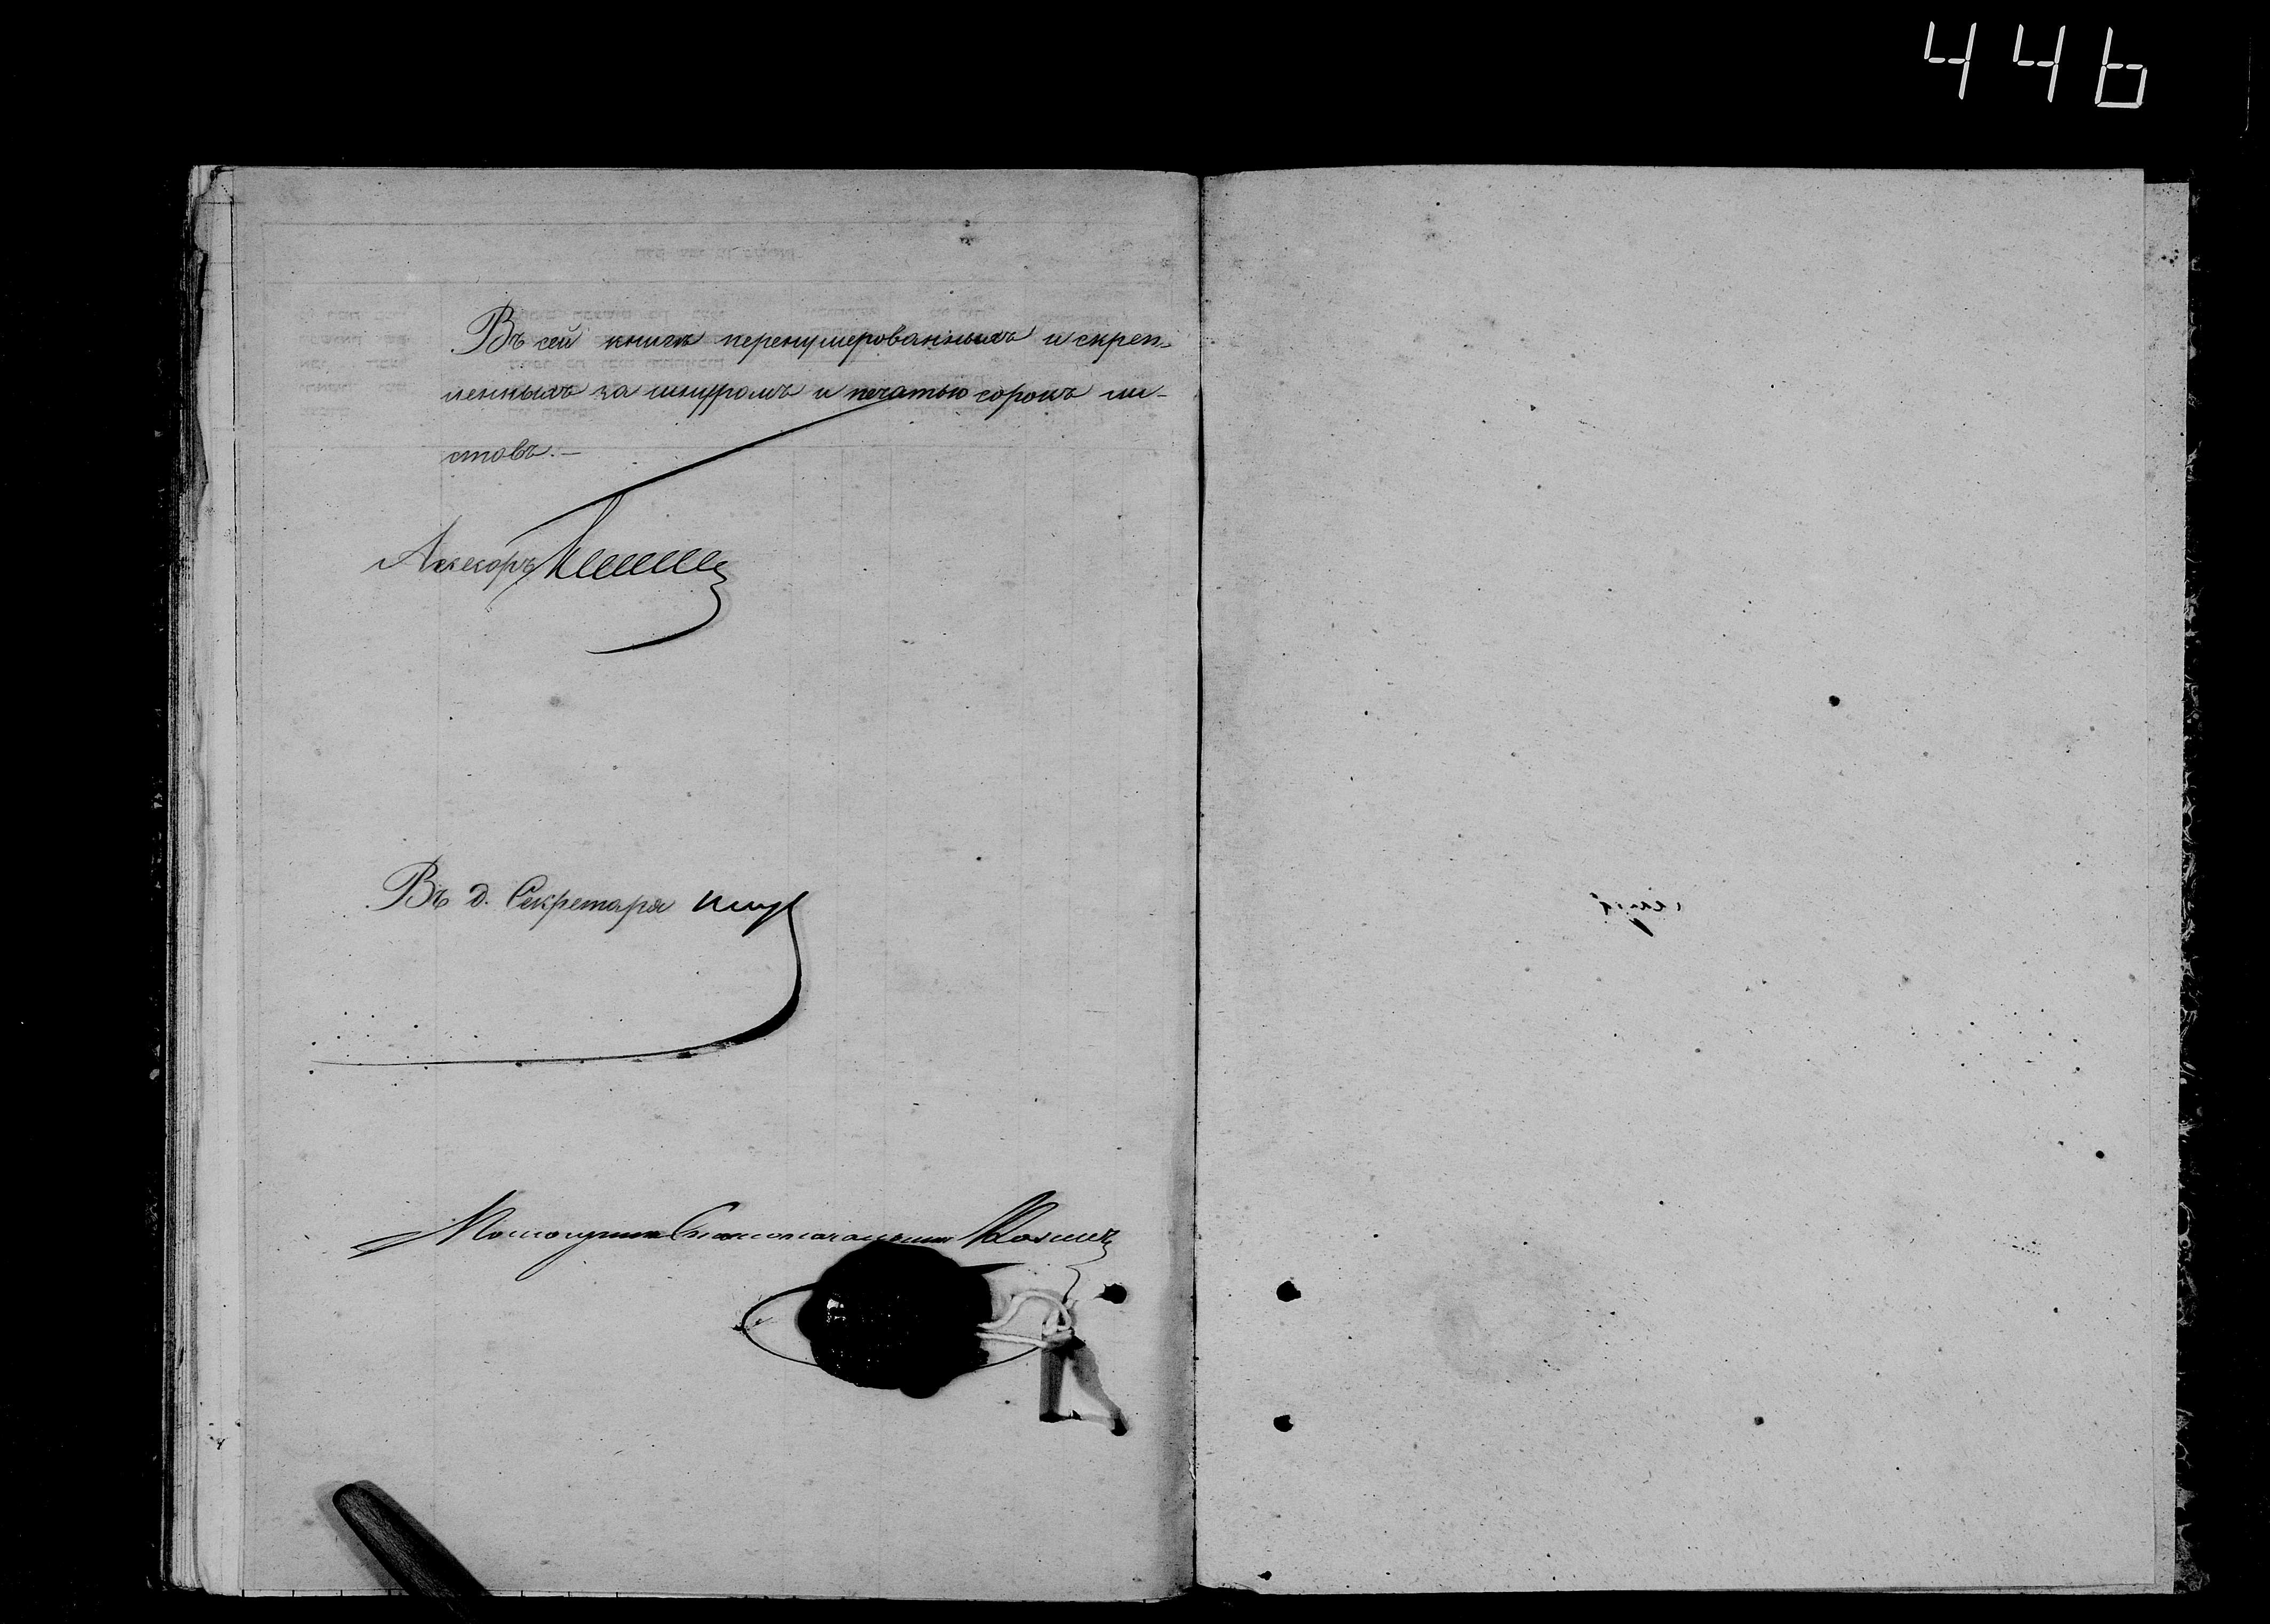 446
Въ сей книгѣ перенумерованныхъ и скреп-
ленныхъ за шнуромъ и печатью сорокъ ли-
стовъ.—
Ассесоръ
Въ д. Секретаря